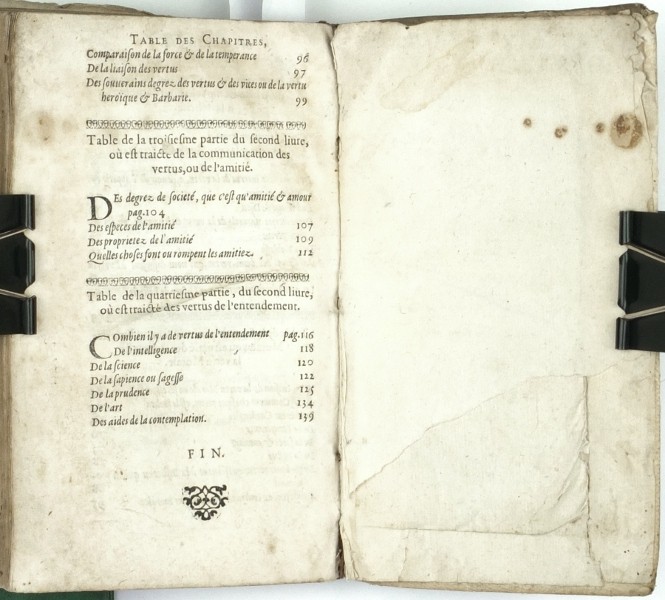 TABLE DES CHAPITRES,
Comparaison de la force & de la temperance 96
De la liaison des vertus 97
Des souuerains degrez des vertus & des vices ou de la vertu
heroique & Barbarie. 99
Table de la troisiesme partie du second liure,
où est traicte de la communication des
vertus, ou de l'amitié.
DEs degrez de societé, que c'est qu'amitié & amour
pag. 104
Des especes de l'amitié 107
Des proprietez de l'amitié 109
Quelles choses font ou rompent les amitiez. 112
Table de la quatriesme partie, du second liure,
où est traicté des vertus de l'entendement.
COmbien il y a de vertus de l'entendement pag. 116
De l'intelligence 118
De la science 120
De la sapience ou sagesse 122
De la prudence 125
De l'art 134
Des aides de la contemplation. 139
FIN.